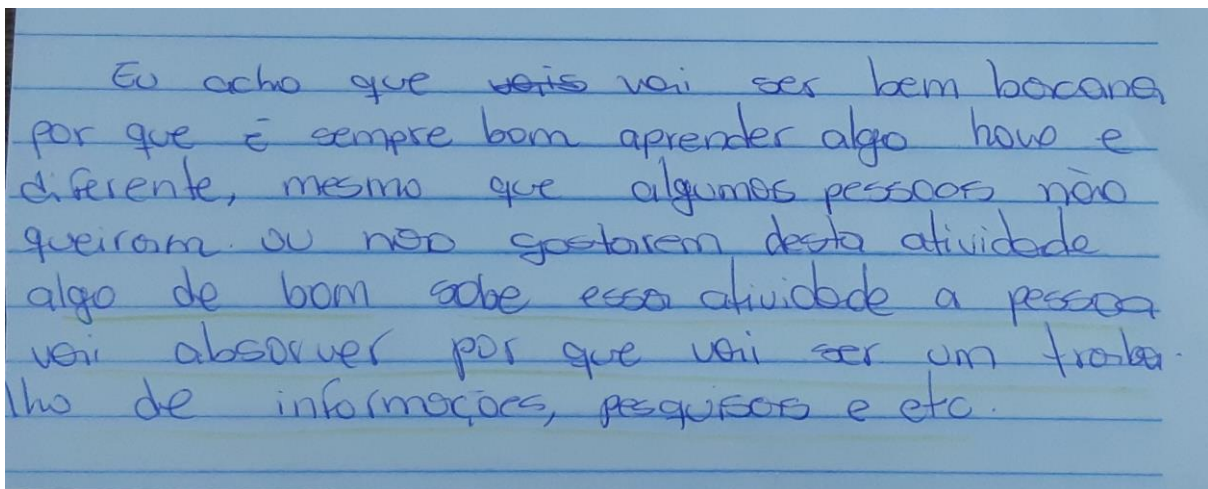 Eu acho que vais vai ser bem bacana
por que é sempre bom aprender algo novo e
diferente, mesmo que algumas pessoas não
queiram ou não gostarem desta atividade
algo de bom sobe essa atividade a pessoa
vai absorver por que vai ser um traba-
lho de informações, pesquisas e etc.